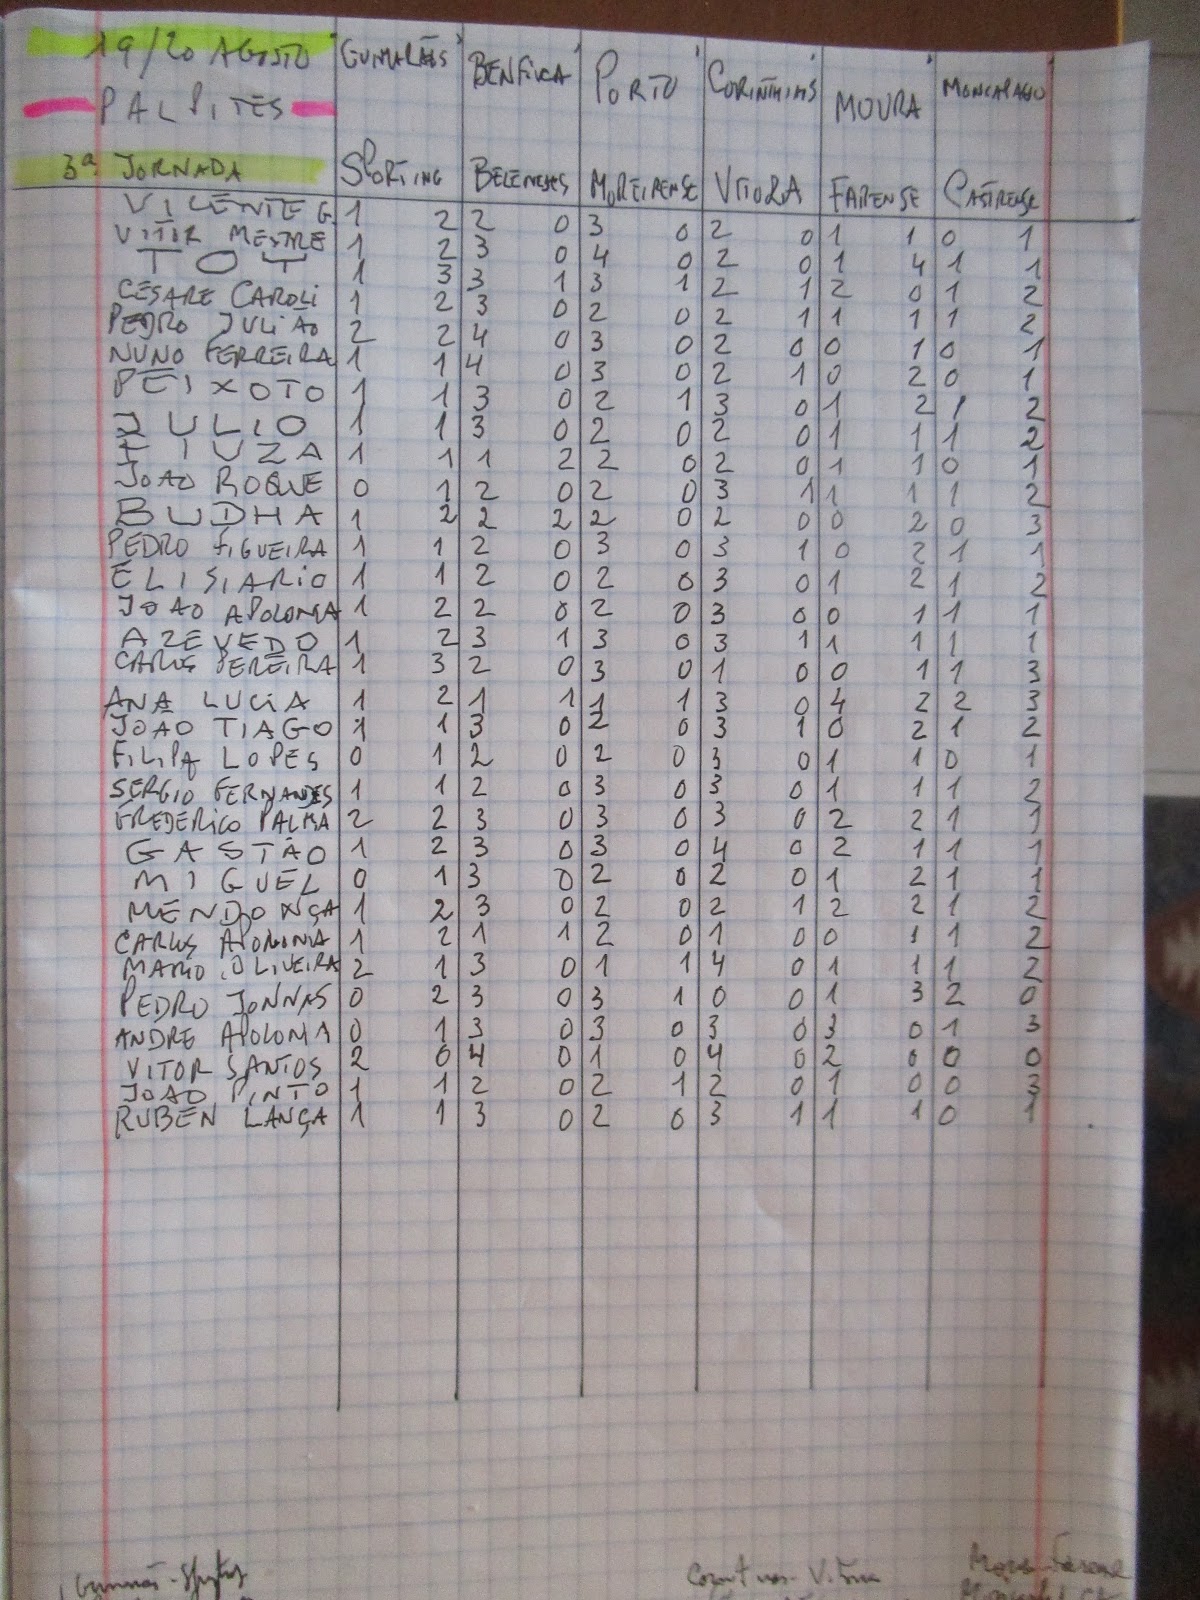 19/20 AGOSTO GUIMARÃES BENFICA PORTO CORINTHIAS MOURA MONCARAPACHO
PALPITES
3ª JORNADA SPORTING BELENENSES MOREIRENSE VITORIA FARENSE CASTRENSE
VICENTE G 1 2 2 0 3 0 2 0 1 1 0 1
VITOR MESTRE 1 2 3 0 4 0 2 0 1 4 1 1
TOT 1 3 3 1 3 1 2 1 2 0 1 2
CESARE CAROLI 1 2 3 0 2 0 2 1 1 1 1 2
PEDRO JULIAO 2 2 4 0 3 0 2 0 0 1 0 1
NUNO FERREIRA 1 1 4 0 3 0 2 1 0 2 0 1
PEIXOTO 1 1 3 0 2 1 3 0 1 2 1 2
JULIO 1 1 3 0 2 0 2 0 1 1 1 2
FIUZA 1 1 1 2 2 0 2 0 1 1 0 1
JOAO ROQUE 0 1 2 0 2 0 3 1 1 1 1 2
BUDHA 1 2 2 2 2 0 2 0 0 2 0 3
PEDRO FIGUEIRA 1 1 2 0 3 0 3 1 0 2 1 1
ELISIARIO 1 1 2 0 2 0 3 0 1 2 1 2
JOAO APOLONIA 1 2 2 0 2 0 3 0 0 1 1 1
AZEVEDO 1 2 3 1 3 0 3 1 1 1 1 1
CARLOS PEREIRA 1 3 2 0 3 0 1 0 0 1 1 3
ANA LUCIA 1 2 1 1 1 1 3 0 4 2 2 3
JOAO TIAGO 1 1 3 0 2 0 3 1 0 2 1 2
FILIPA LOPES 0 1 2 0 2 0 3 0 1 1 0 1
SERGIO FERNANDES 1 1 2 0 3 0 3 0 1 1 1 2
FREDERICO PALMA 2 2 3 0 3 0 3 0 2 2 1 1
GASTÃO 1 2 3 0 3 0 4 0 2 1 1 1
MIGUEL 0 1 3 0 2 0 2 0 1 2 1 1
MENDONÇA 1 2 3 0 2 0 2 1 2 2 1 2
CARLOS APOLONIA 1 2 1 1 2 0 1 0 0 1 1 2
MARIO OLIVEIRA 2 1 3 0 1 1 4 0 1 1 1 2
PEDRO JONNAS 0 2 3 0 3 1 0 0 1 3 2 0
ANDRE APOLONIA 0 1 3 0 3 0 3 0 3 0 1 3
VITOR SANTOS 2 0 4 0 1 0 4 0 2 0 0 0
JOAO PINTO 1 1 2 0 2 1 2 0 1 0 0 3
RUBEN LANÇA 1 1 3 0 2 0 3 1 1 1 0 1